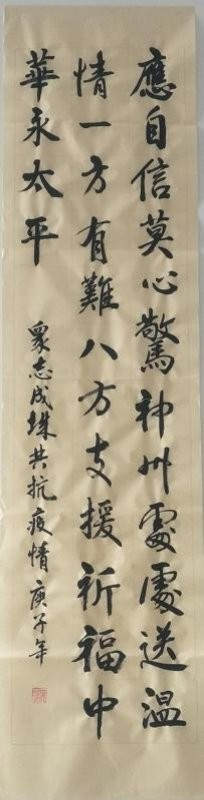 應自信莫心驚神州處處送溫
情一方有難八方支援祈福中
華永太平
衆志成城共抗疫情庚子年